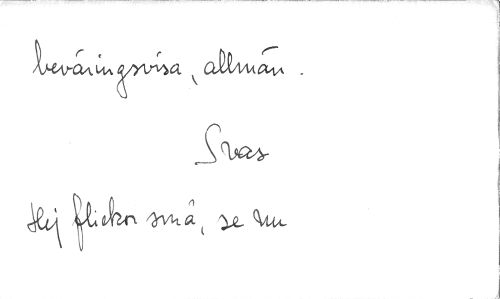 beväringsvisa, allmän.
Svas
Hej flickor små, se nu